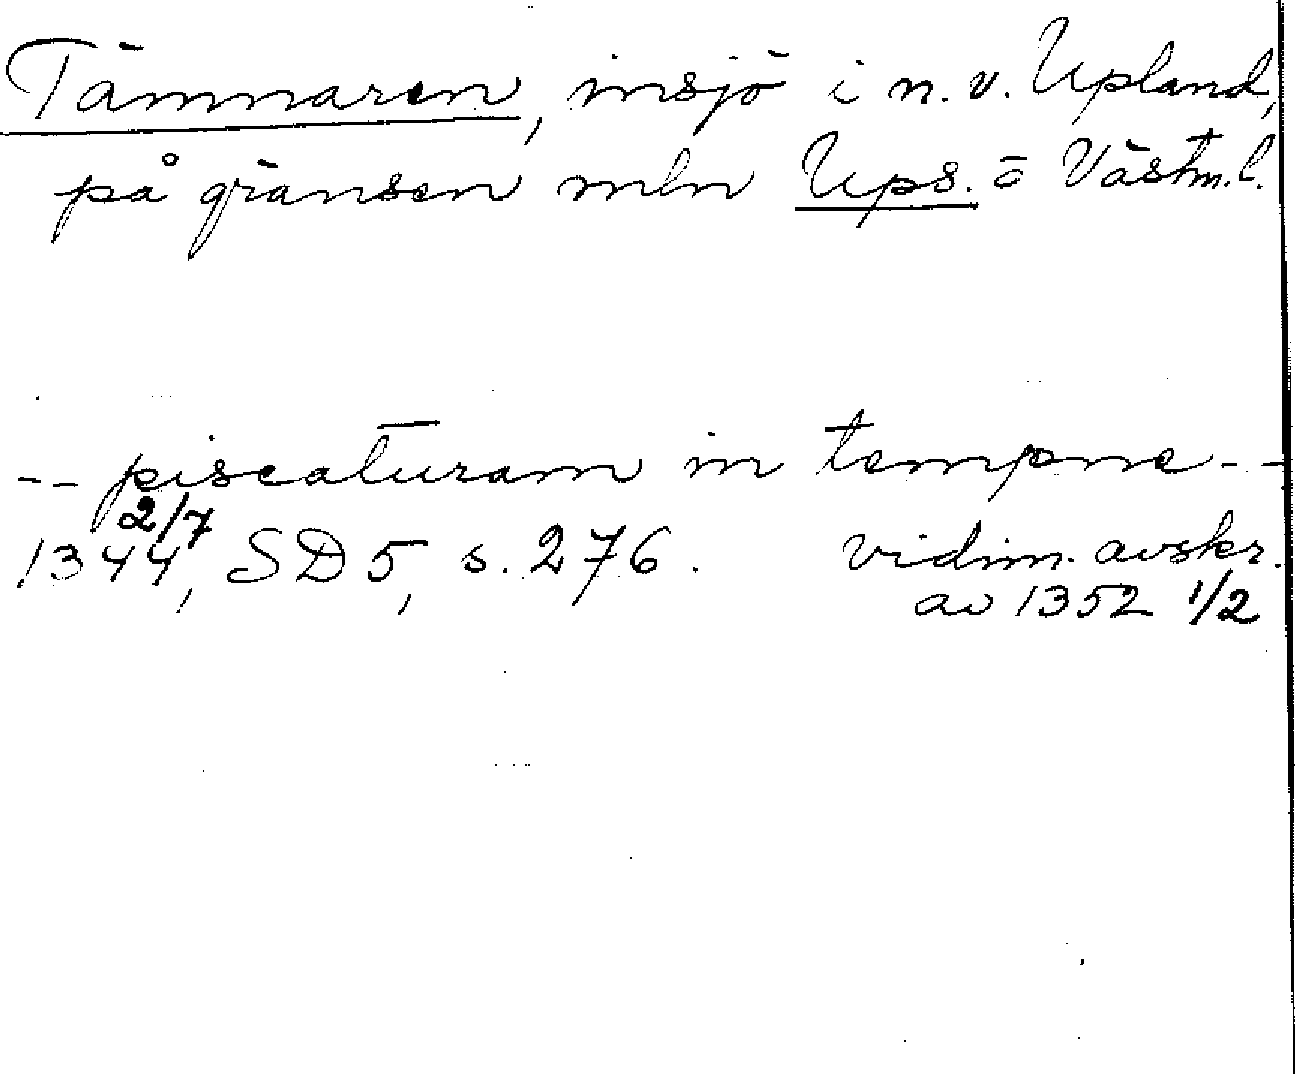 Tämnaren, insjö i n.v. Upland,
på gränsen mln Ups. o Västm.l.
-- piscaturam in tempne --
2/7
1344, SD 5, s. 276. vidim. avskr.
av 1352 1/2